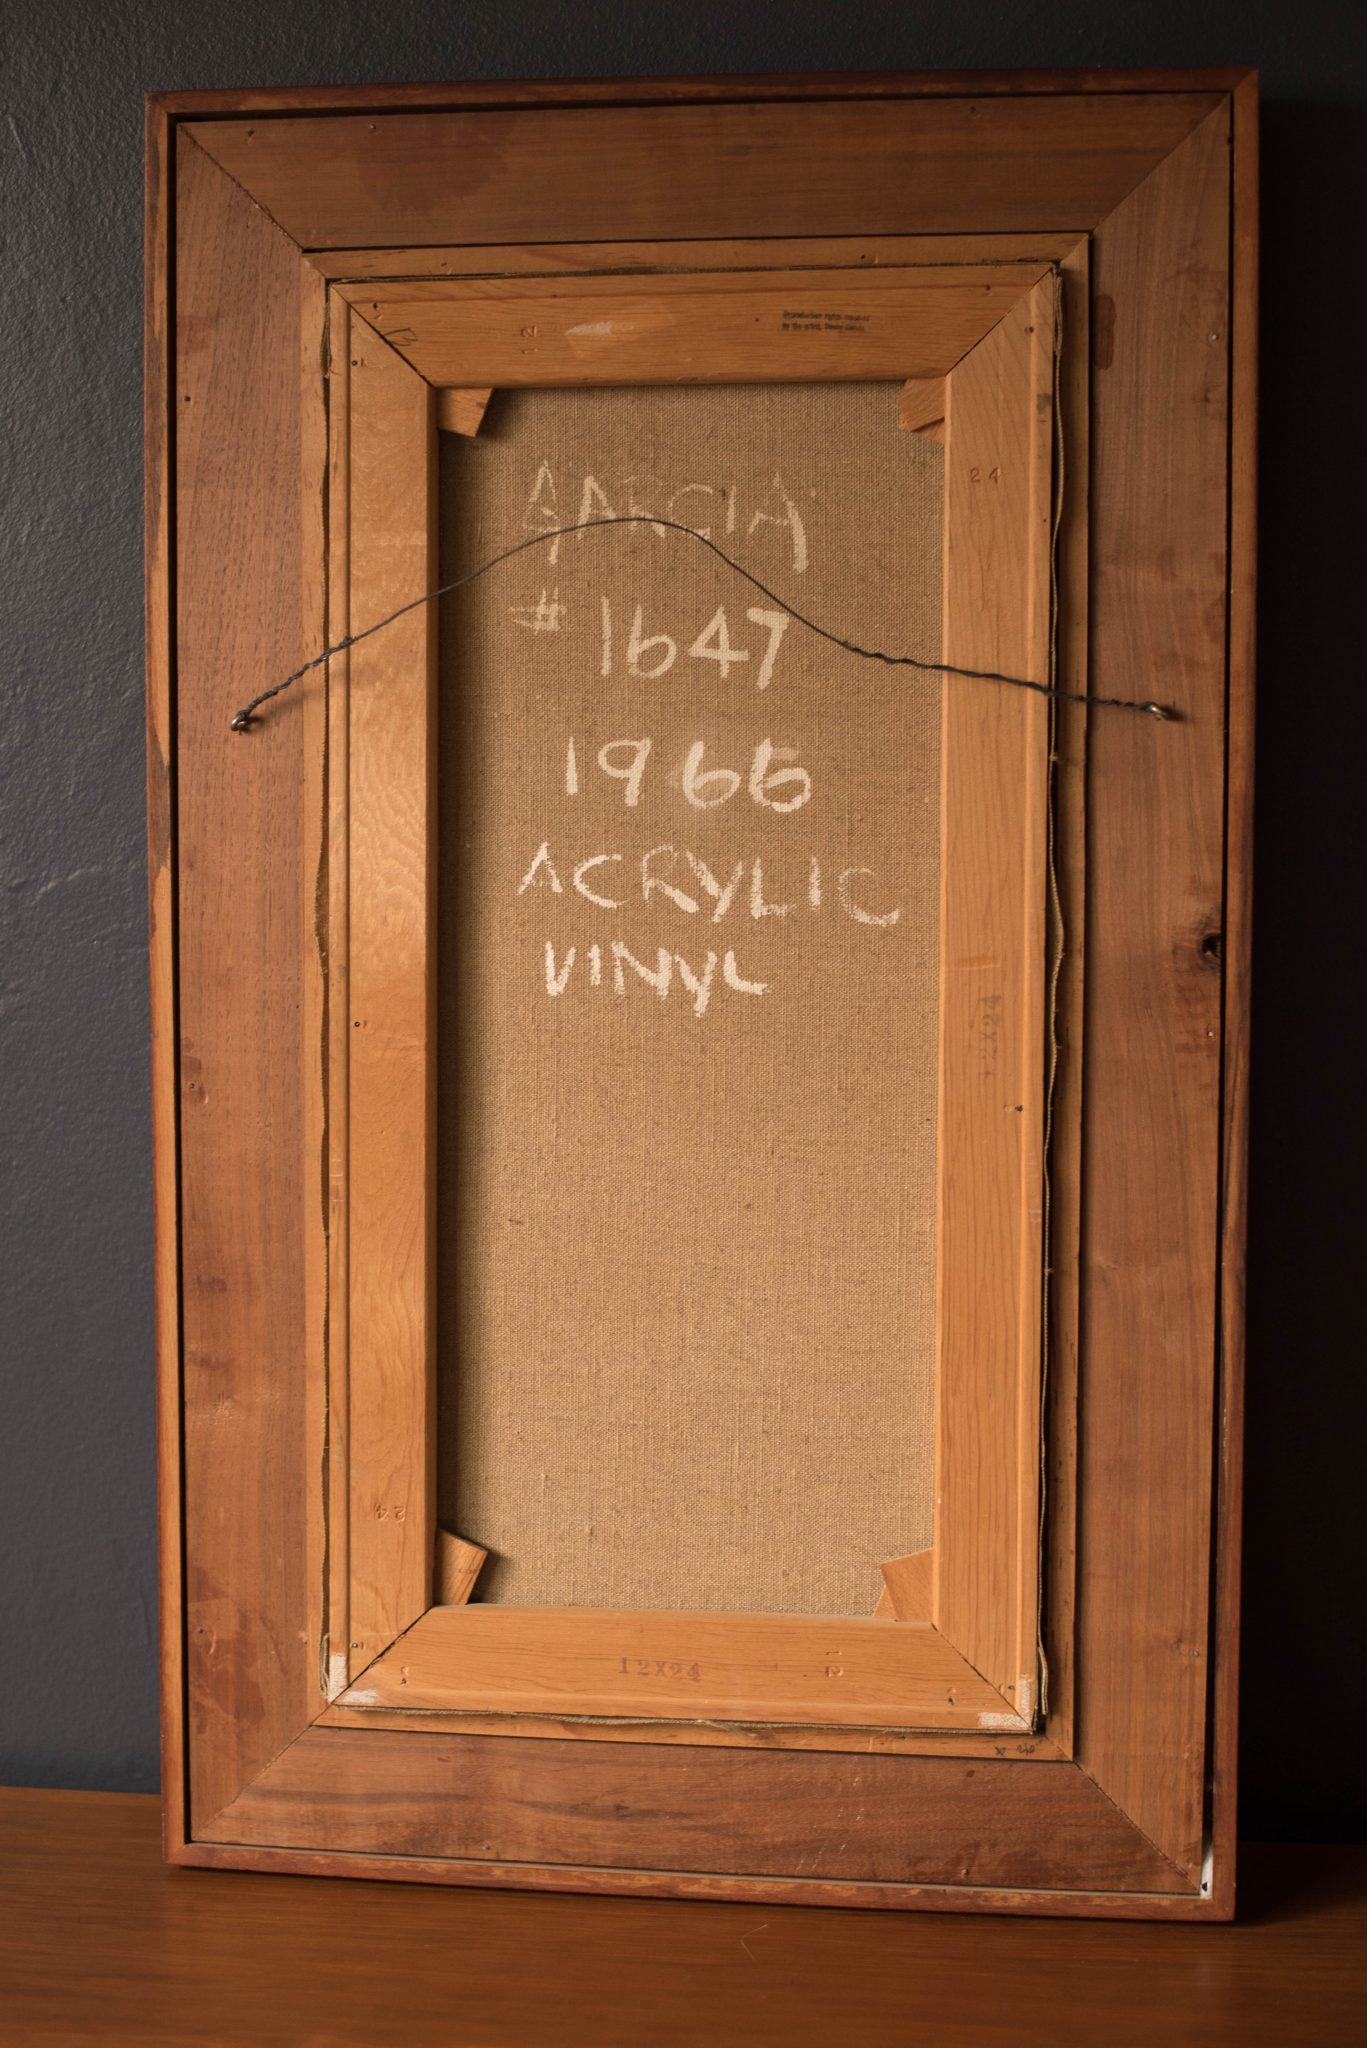 12
Reproduction rights reserved
by the artist, Danny Garcia
24
GARCIA
# 1647
1965
ACRYLIC
VINYL
12X24
24
12X24
12